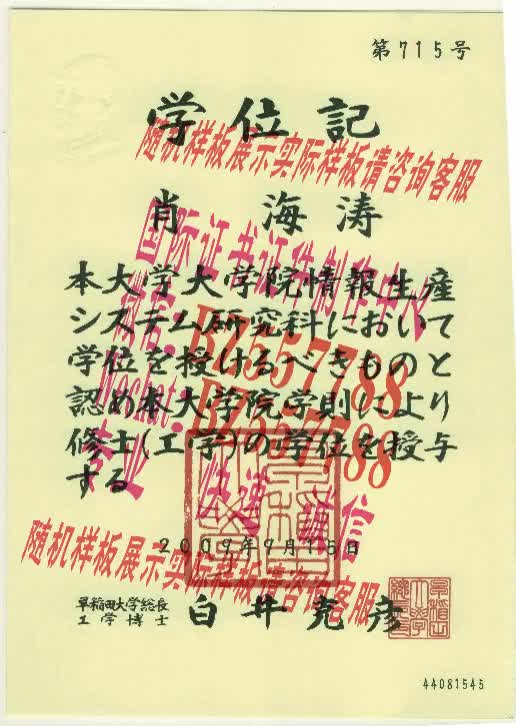 第715号
学位記
随机样板展示实际样板请咨询客服
肖 海涛
国际证书证件制作中心
本大学大学院情報生産
システム研究科において
学位を授けるべきものと
認め本大学院学則により
修士(工学)の学位を授与
する
微信:BZ557788
Wechat:BZ557788
专业 快速 诚信
2009年9月15日
随机样板展示实际样板请咨询客服
早稲田大学総長
工学博士
白井克彦
44081545